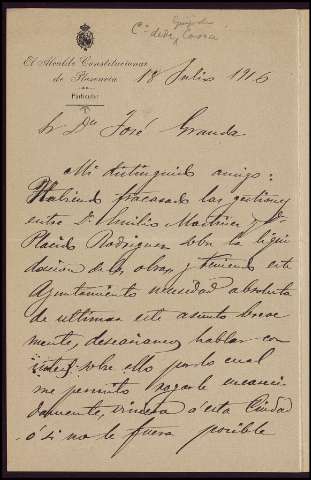 El Alcalde Constitucional
de Plasencia
Particular
18 Julio 1916
Sr Dn José Granda
Mi distinguido amigo:
Habiendo fracasado las gestiones
entre Dn Emilio Martinez y Dn
Placido Rodriguez sobre la liqui
dacion de las obras, y teniendo este
Ayuntamiento necesidad absoluta
de ultimar este asunto breve
mente, deseariamos hablar con
usted sobre ello por lo cual
me permito rogarle encareci
damente, viniera a esta Ciudad
ó si no le fuera posible